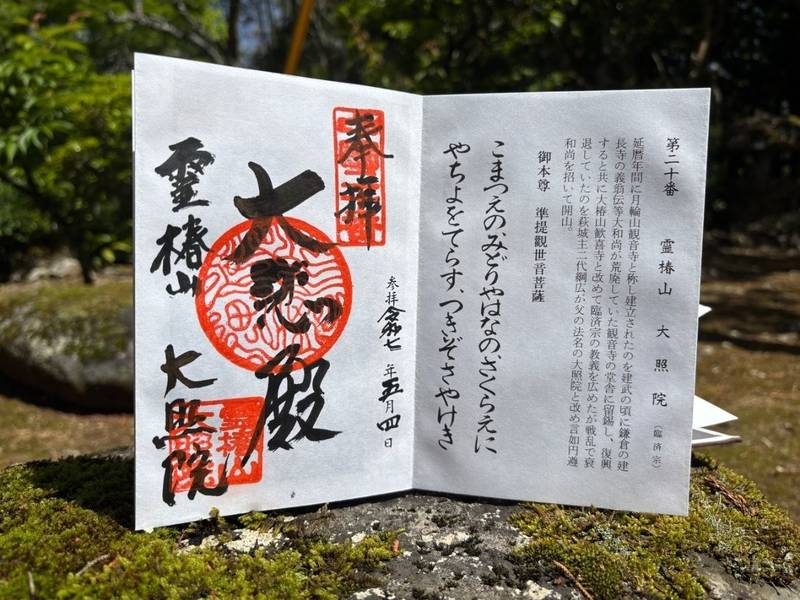 第二十番 霊椿山 大照院 (臨済宗)
延暦年間に月輪山観音寺と称し建立されたのを建武の頃に鎌倉の建
長寺の義翁伝等大和尚が荒廃していた観音寺の堂舎に留錫し、復興
すると共に大椿山歓喜寺と改めて臨済宗の教義を広めたが戦乱で衰
退していたのを萩城主二代綱広が父の法名の大照院と改め言如円遵
和尚を招いて開山。
御本尊 準提觀世音菩薩
こまつえのみどりやはなのさくらえに
やちよをてらす、つきぞさやけき
奉拝
参拝 令和七年五月四日
大悲殿
霊椿山 大照院